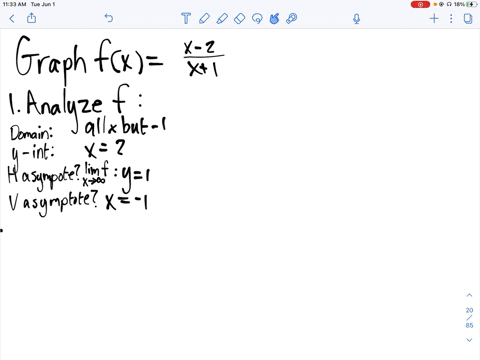 11:33 AM Tue Jun 1
18%
Graph f(x) = x-2 / x+1
1. Analyze f :
Domain: all x but -1
y-int: x = 2
H asympote? lim x→∞ f : y = 1
V asymptote? x = -1
20 / 85